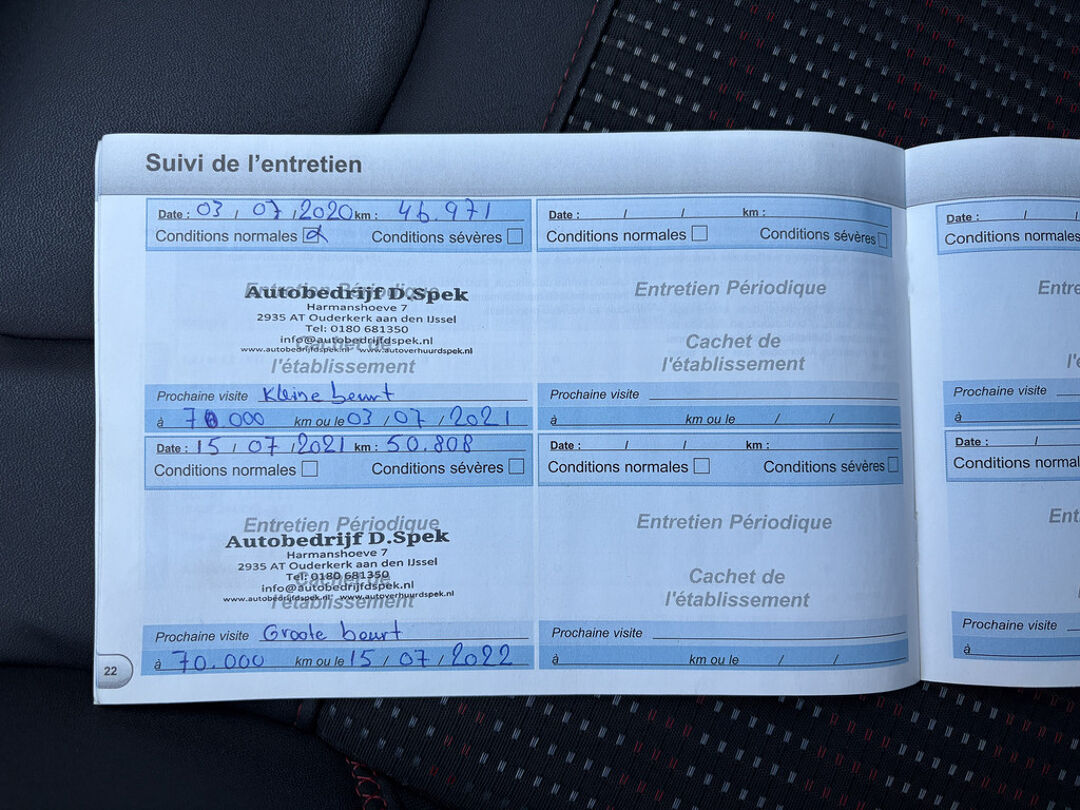 Suivi de l'entretien
Date : 03 / 07 / 2020 km : 46.971
Conditions normales Conditions sévères
Entretien Périodique
Autobedrijf D.Spek
Harmanshoeve 7
2935 AT Ouderkerk aan den IJssel
Tel: 0180 681350
info@autobedrijfdspek.nl
Cachet de
www.autobedrijfdspek.nl www.autoverhuurdspek.nl
l'établissement
Prochaine visite Kleine beurt
à 70.000 km ou le 03 / 07 / 2021
Date : 15 / 07 / 2021 km : 50.808
Conditions normales Conditions sévères
Entretien Périodique
Autobedrijf D.Spek
Harmanshoeve 7
2935 AT Ouderkerk aan den IJssel
Tel: 0180 681350
Cachet de
info@autobedrijfdspek.nl
www.autobedrijfdspek.nl www.autoverhuurdspek.nl
l'établissement
Prochaine visite Groote beurt
à 70.000 km ou le 15 / 07 / 2022
22
Date : / / km :
Conditions normales Conditions sévères
Entretien Périodique
Cachet de
l'établissement
Prochaine visite
à km ou le / /
Date : / / km :
Conditions normales Conditions sévères
Entretien Périodique
Cachet de
l'établissement
Prochaine visite
à km ou le / /
Date : / /
Conditions normales
Entre
l'é
Prochaine visite
à
Date : /
Conditions normal
Ent
Prochaine visite
à